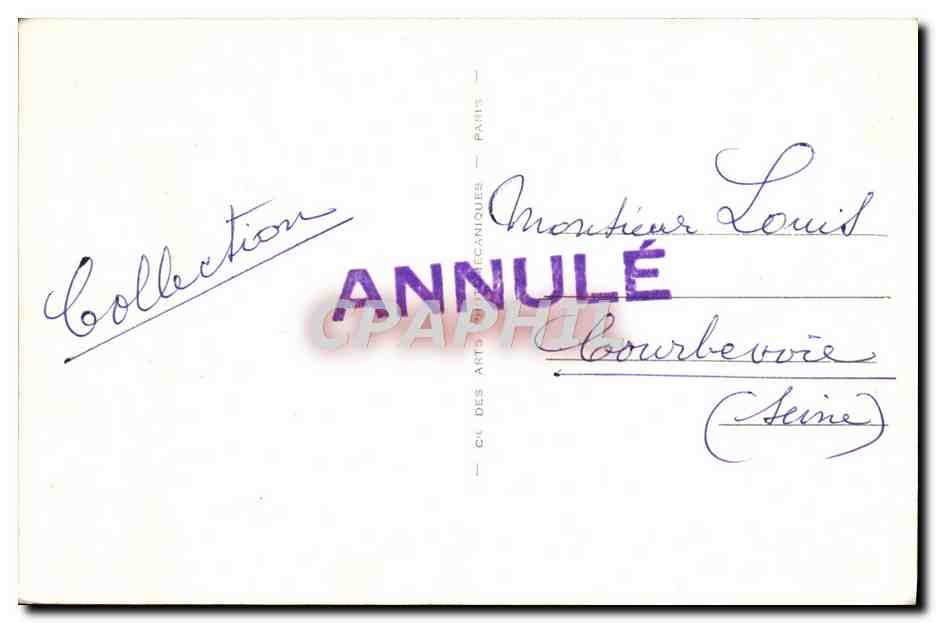 Collection
— Cie DES ARTS PHOTOMECANIQUES — PARIS —
Monsieur Louis
ANNULÉ
CPAPHIL
Courbevoie
(Seine)